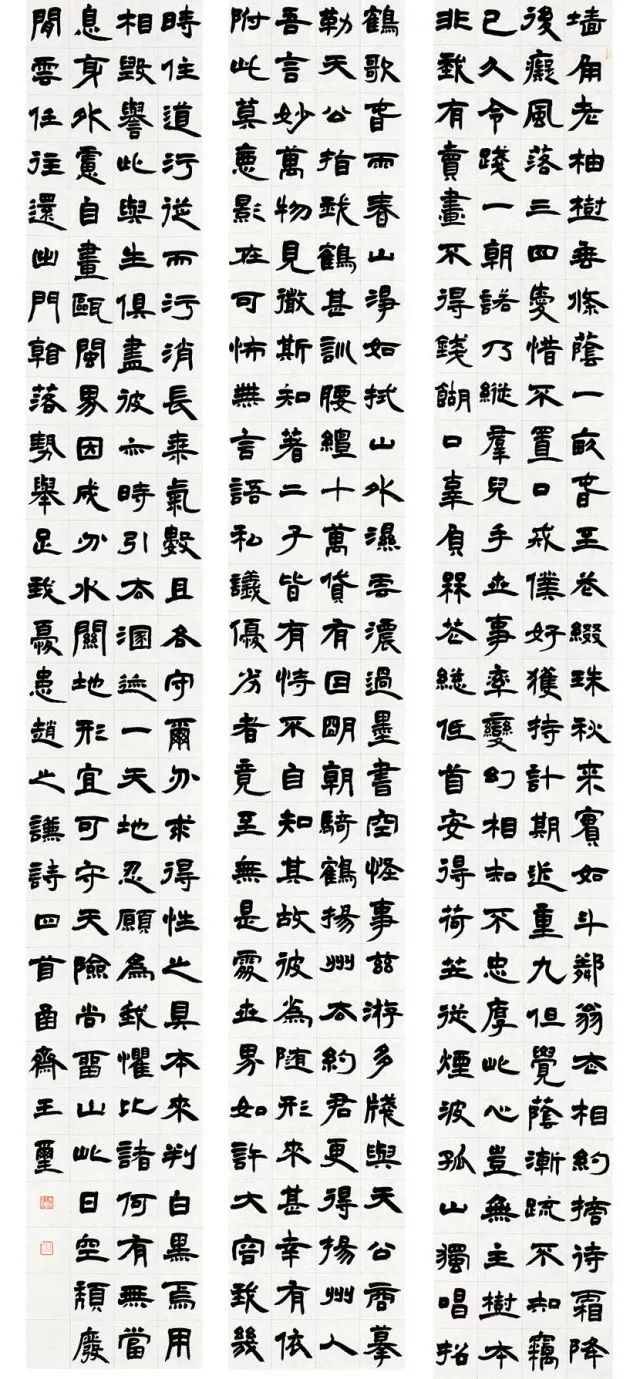 墙角老柚樹垂條蔭一畝春至花綴珠秋来實如斗鄰翁去相約摘待霜降
後癡風落三四愛惜不置口戒僕好獲持計期近重九但覺蔭漸疏不知竊
已久令踐一朝諾乃縱群兒手世事率變幻相知不忠厚此心豈無主樹本
非我有賣畫不得錢餬口辜負槑花總低首安得荷笠從煙波孤山獨唱招
鶴歌春雨春山净如拭山外濕雲濃過墨書空怪事兹游多牋與天公商摹
勒天公拍我鶴甚訓腰纏十萬貸有因明朝騎鶴揚州去約君更得揚州人
吾言妙萬物見微斯知著二子皆有恃不自知其故彼為随形來甚幸有依
附此莫惡影在可怖無言語私議優劣者竟至無是處世界如許大容我幾
時住道行從而行消長乘氣數且各守爾分求得性之具本來判白黑焉用
相毀譽此與生俱盡彼亦時引去溷迹一天地忍願為我懼比諸何有無當
息身外慮自畫甌閩界因成分水關地形宜可守天險尚留山此日空頹廢
閒雲任往還出門落勢舉足我憂患趙之謙詩四首甬齋王璽